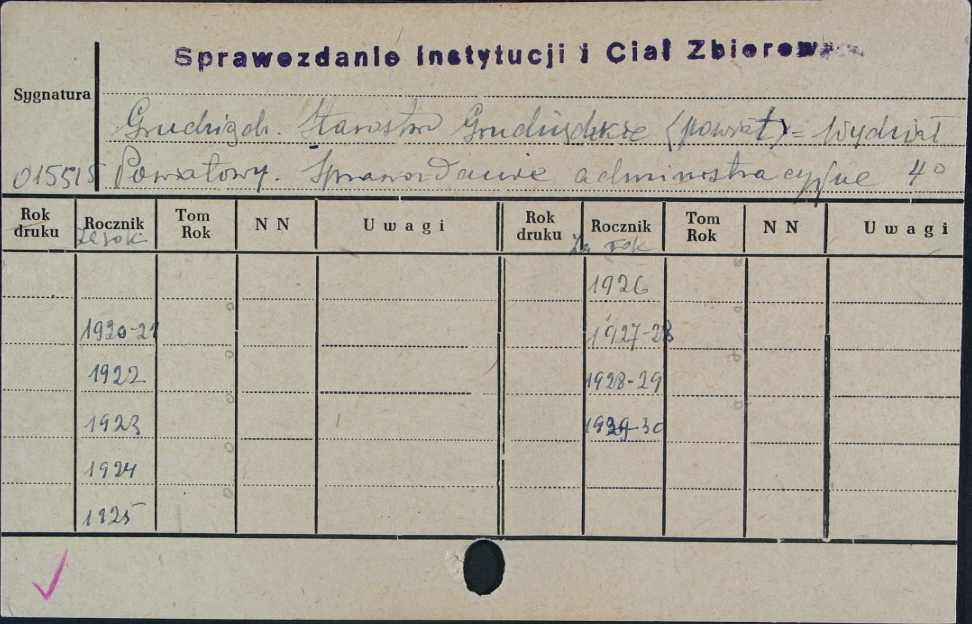 Sprawozdanie Instytucji i Ciał Zbiorow
Sygnatura
Grudziądz. Starostwo Grudziądzkie (powiat) = Wydział
015515 Powiatowy. Sprawozdanie administracyjne 4°
Rok druku Rocznik Za rok Tom Rok NN Uwagi Rok druku Rocznik Za rok Tom Rok NN Uwagi
1926
1920-21 1927-28
1922 1928-29
1923 1929-30
1924
1925